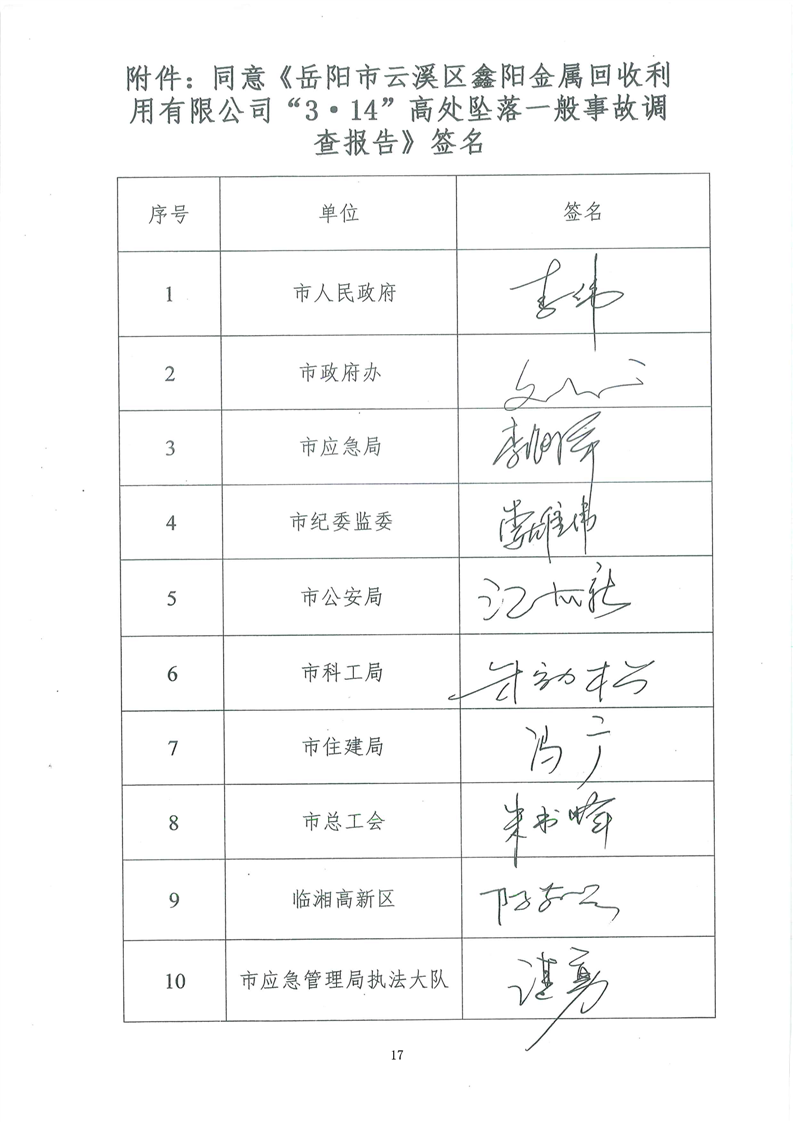 附件：同意《岳阳市云溪区鑫阳金属回收利
用有限公司“3·14”高处坠落一般事故调
查报告》签名
序号 单位 签名
1 市人民政府 李伟
2 市政府办
3 市应急局
4 市纪委监委 李雄伟
5 市公安局
6 市科工局
7 市住建局 冯广
8 市总工会 朱书峰
9 临湘高新区
10 市应急管理局执法大队 谌勇
17